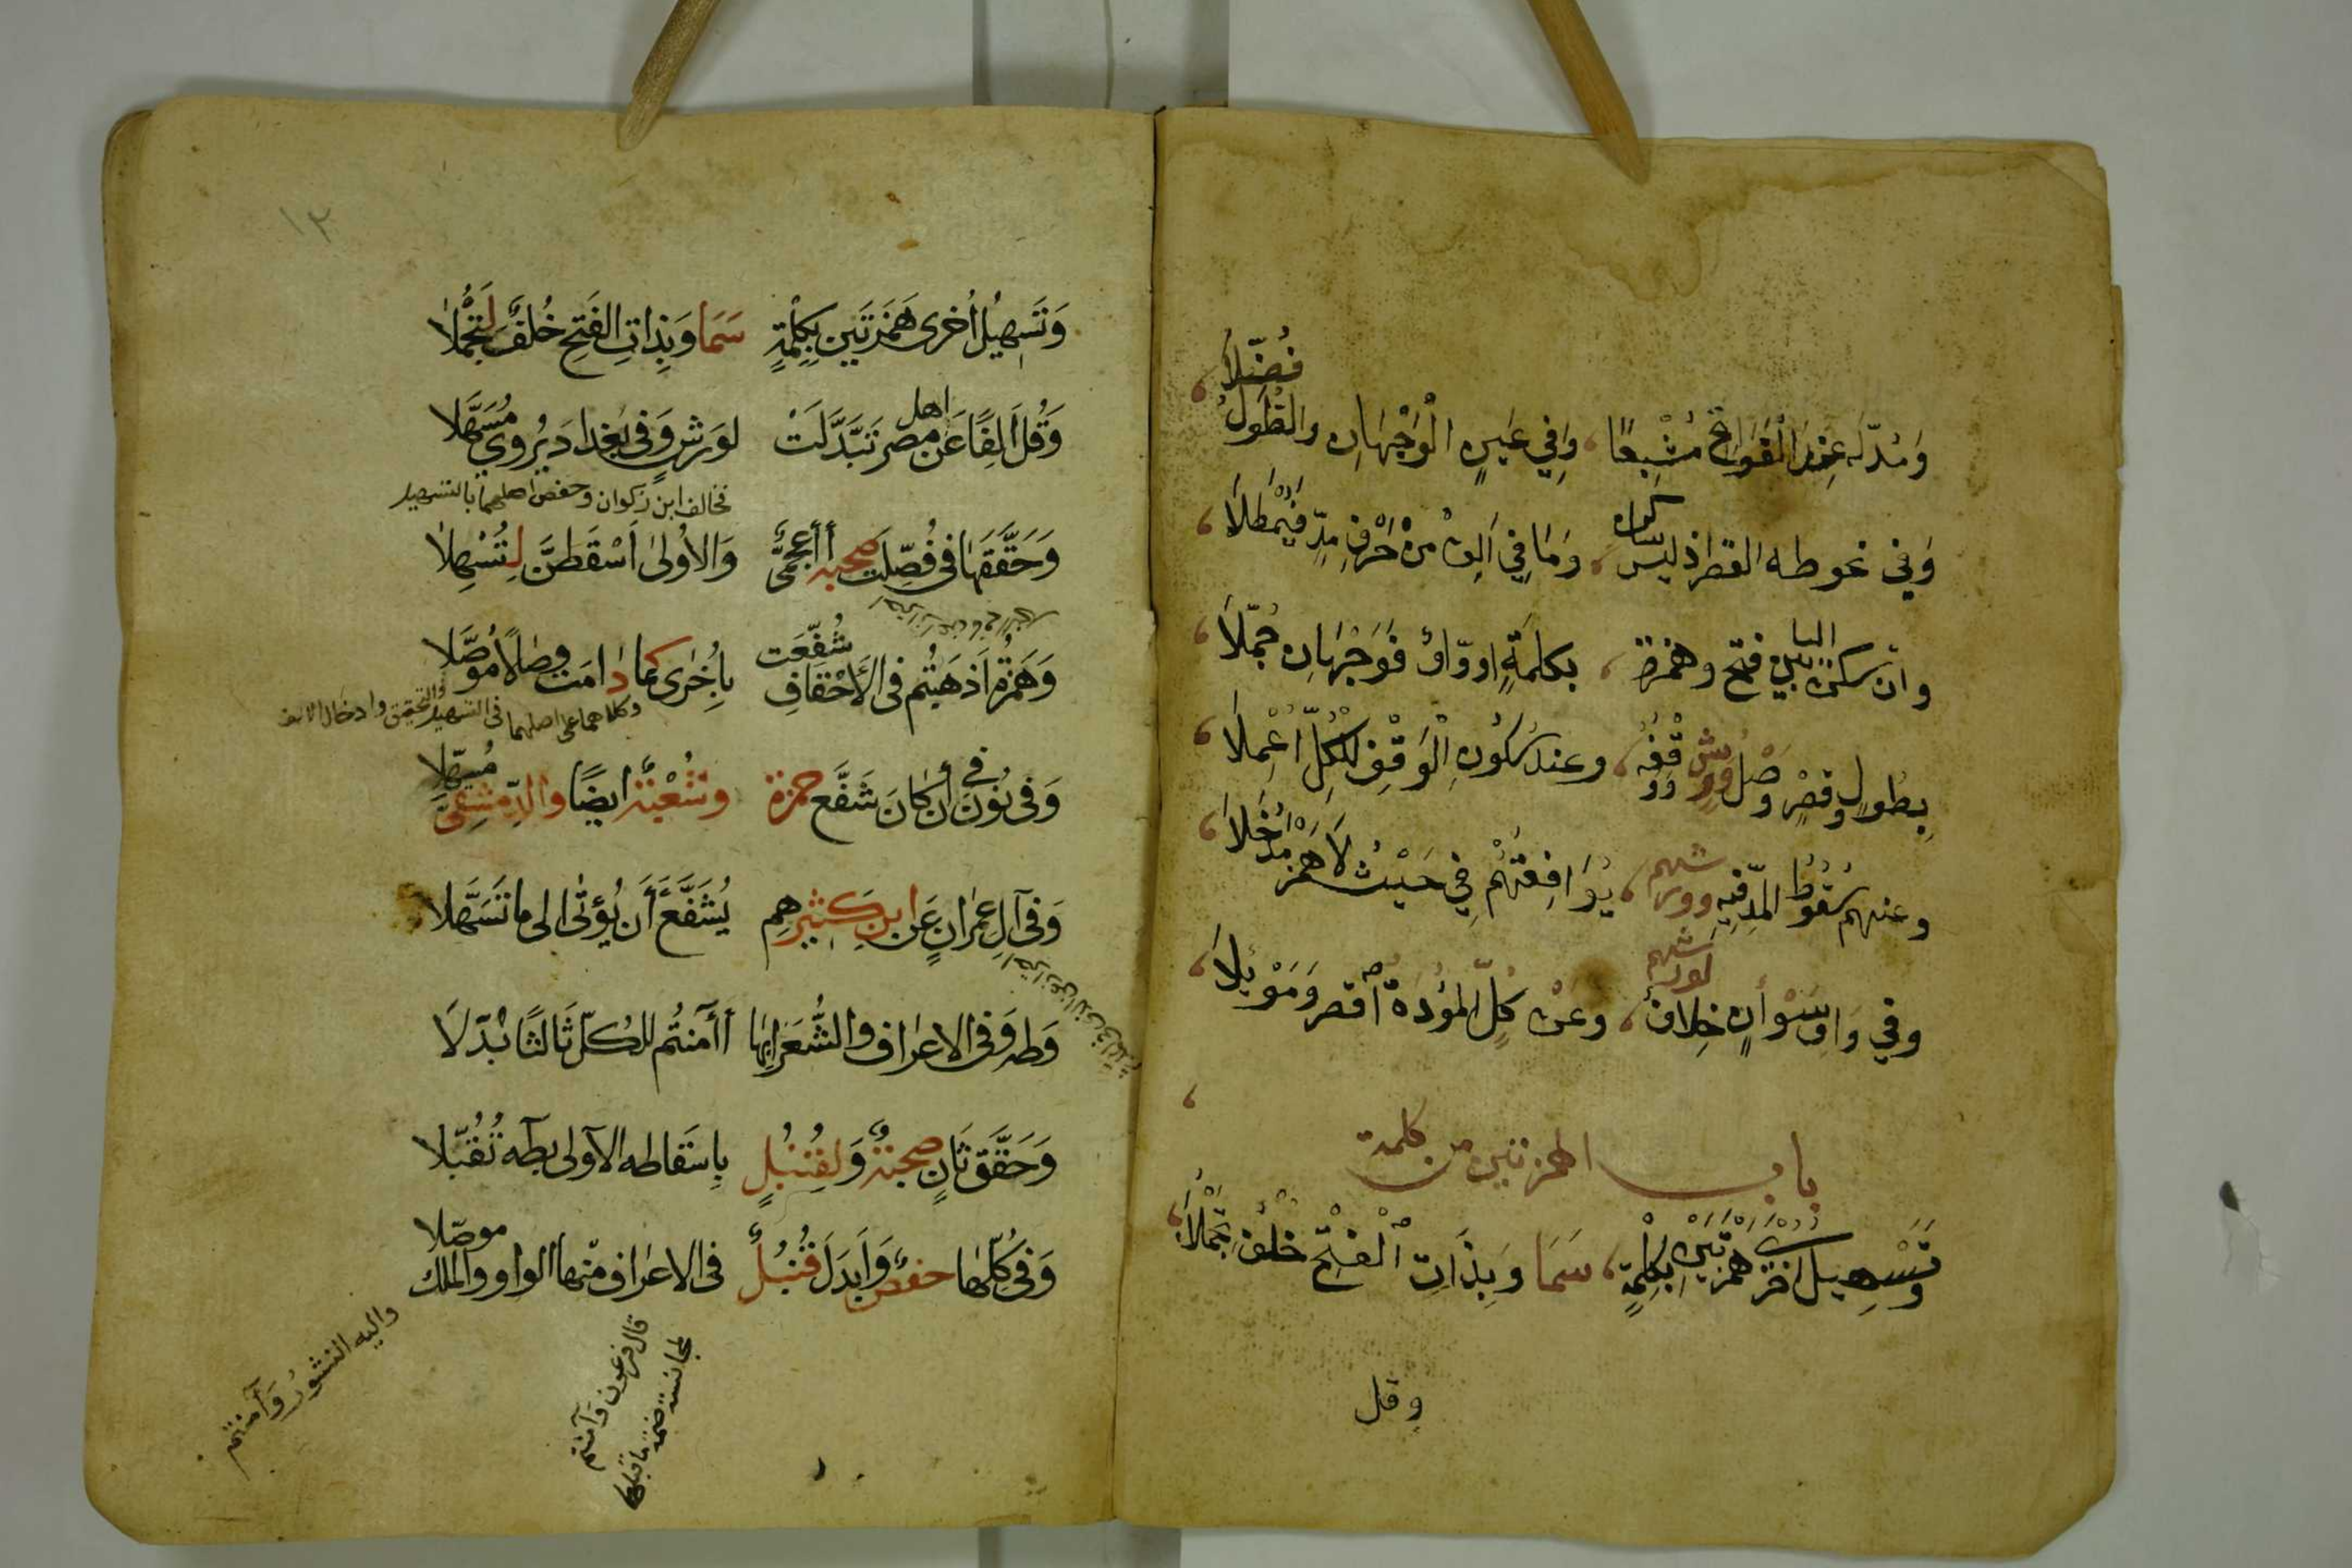 وَمُدَّ لَهُ عِنْدَ الْفَوَاتِحِ مُشْبِعًا ، وَفِي عَيْنٍ الْوَجْهَانِ وَالطُّولُ فُضِّلَا ،
وَفِي نحو طه القصر اذ ليس ساكن ، وَمَا فِي أَلِفْ مِنْ حَرْفِ مَدٍّ فَيُمْطَلَا ،
وان تسكن اليا بين فتح وهمزة ، بكلمةٍ او واوٌ فَوَجْهَانِ جُمِّلَا ،
بِطُولٍ وقصرٍ وَصْلُ وَرْشٍ ووقفُهُ ، وعند سُكُونِ الْوَقْفِ لِلْكُلِّ أُعْمِلَا ،
وعنهم سُقُوطُ المدِّ فيهِ وورشهم ، يُوَافِقُهُمْ فِي حَيْثُ لَا هَمْزَ مُدْخَلَا ،
وفي وَاوِ سَوْآتٍ خِلَافٌ لورشهم ، وعَنْ كُلٍّ الموْءُدَةُ اقصر وَمَوْئِلَا ،
باب الهمزتين من كلمة
وَتَسْهِيلُ أخرى همزتَيْنِ بِكِلْمَةٍ ، سَمَا وَبِذَاتِ الْفَتْحِ خُلْفٌ لِتَجْمُلَا ،
وقل
١٣
وَتَسْهِيلُ أُخرى هَمْزَتَيْنِ بِكِلْمَةٍ سَمَا وَبِذاتِ الفَتحِ خُلفٌ لِتَجْمُلَا
وَقُل أَلِفًا عَن اهل مصر تَبَدَّلَتْ لورشٍ وَفى بَغداد يُروى مُسَهَّلا
فخالف ابن ذكوان وحفص اصلهما بالتسهيل
وَحَقَّقَهَا فى فُصِّلَت صحبة أأعجمىٌّ وَالاُولىٰ أَسْقَطنَّ لِتُسْهِلَا
وَهَمْزَةُ اَذهَبْتُم فى الأَحْقافِ شُفِّعَت بِأُخرَى كما دامَت وِصَالًا مُوَصَّلا
وكلاهما على اصلهما فى التسهيل والتحقيق وادخال الالف
وَفى نُونَ فى أن كانَ شَفَّع حمزة وشُعْبَةُ ايضًا والدِّمَشقِىّ مُسَهِّلا
وَفى آلِ عِمرانٍ عَن ابنِ كَثِيرِهِم يُشَفَّعُ أَن يُؤتٰى الى ما تَسَهَّلا
وَطه وَفى الاعراف والشُّعَرا بِهَا أَآمَنتُم للكلّ ثَالثًا ابْدَلَا
وَحَقَّقَ ثَانٍ صحبةٌ وَلِقُنْبُلٍ بِاِسقاطه الاولى بطه تُقُبِّلا
وَفى كُلِّهَا حفصٌ وَاَبدَلَ قُنبُلٌ فى الاعراف مّنها الواو والملك موصّلا
واليه النشور وَآمنتم
قال فرعون وَآمنتم
لمجانسة ضمة ما قبلها